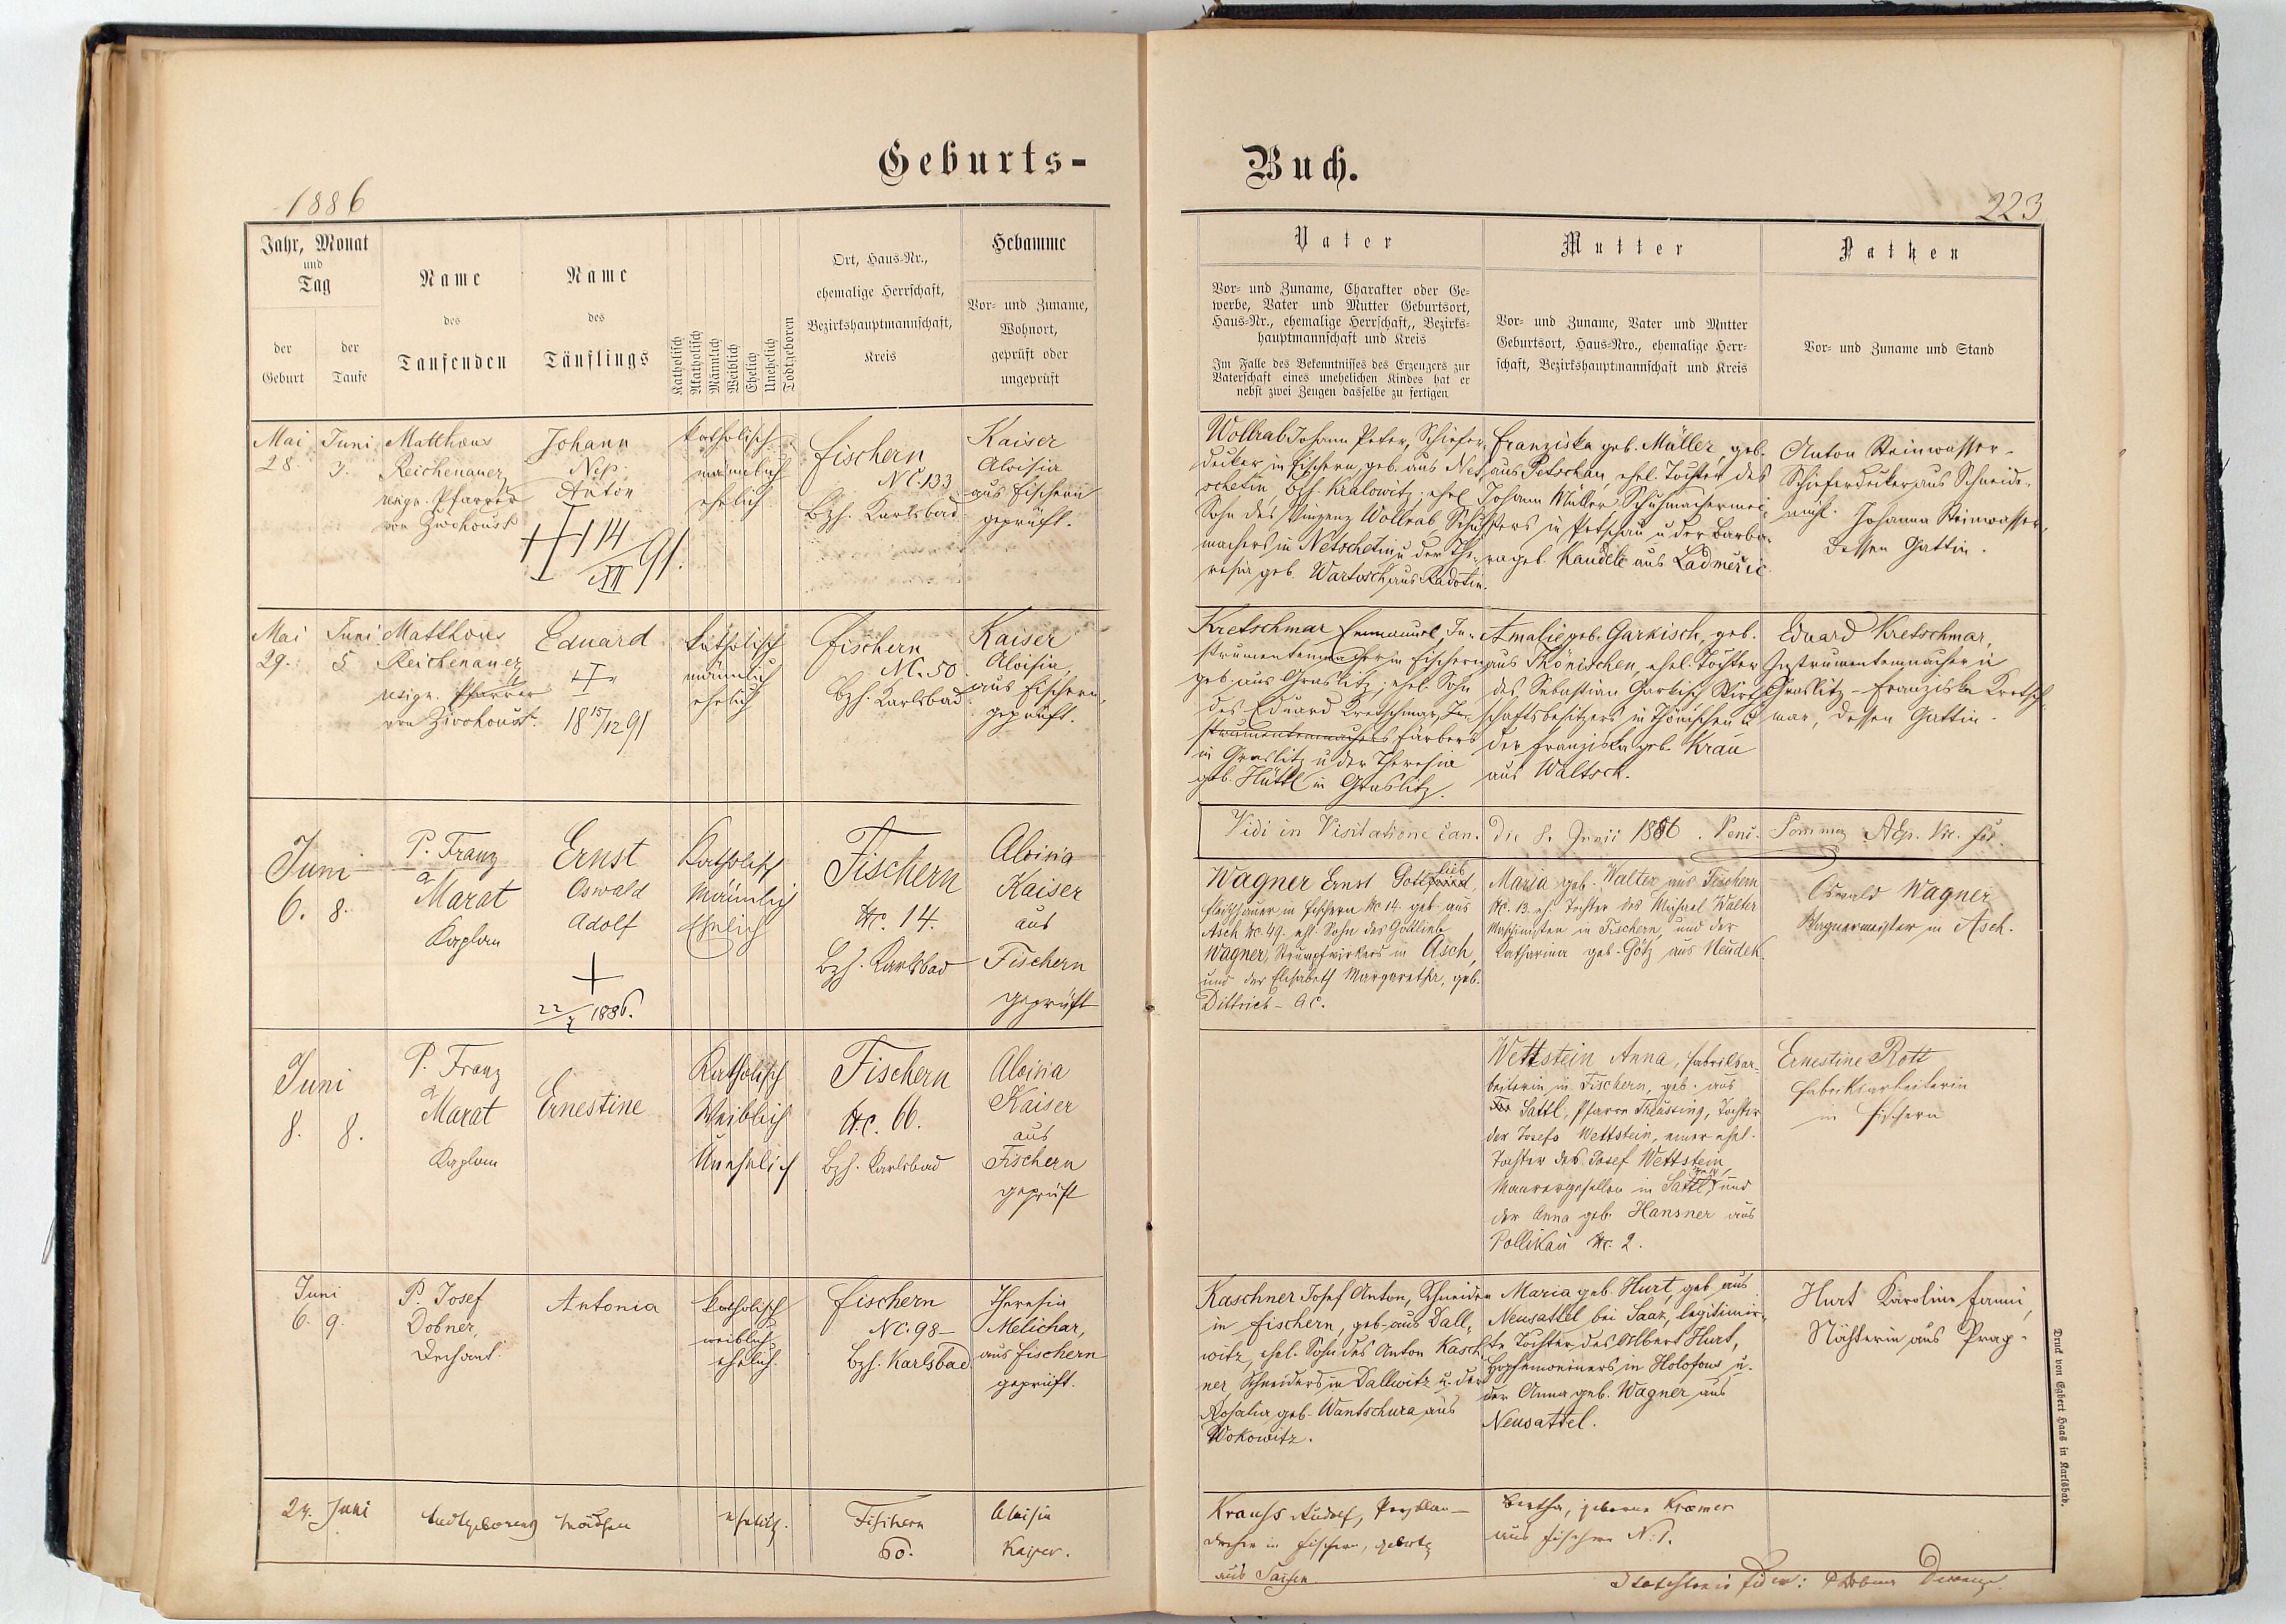 Geburts-
1886
Jahr, Monat
und
Tag
der
Geburt
der
Taufe
Name
des
Taufenden
Name
des
Täuflings
Katholisch
Akatholisch
Männlich
Weiblich
Ehelich
Unehelich
Todtgeboren
Ort, Haus-Nr.,
ehemalige Herrschaft,
Bezirkshauptmannschaft,
Kreis
Hebamme
Vor- und Zuname,
Wohnort,
geprüft oder
ungeprüft
Mai
28.
Juni
Matthäus
Reichenauer
resign. Pfarrer
von
Johann
Nep.
Anton
14
XII 91.
katholisch
männlich
ehelich
Fischern
NC. 133
Bzh. Karlsbad
Kaiser
Aloisia
aus Fischern
geprüft.
Mai
29.
Juni
5
Matthäus
Reichenauer
resign. Pfarrer
von
Eduard
18 15/12 91
katholisch
männlich
ehelich
Fischern
NC. 50
Bzh. Karlsbad
Kaiser
Aloisia,
aus Fischern,
geprüft.
Juni
6. 8.
P. Franz
Marat
Kaplan
Ernst
Oswald
Adolf
22/7 1886.
Katholisch
Männlich
Ehelich
Fischern
Nc. 14.
Bzh. Karlsbad
Aloisia
Kaiser
aus
Fischern
geprüft
Juni
8. 8.
P. Franz
Marat
Kaplan
Ernestine
Katholisch
Weiblich
Unehelich
Fischern
Nc. 66.
Bzh. Karlsbad
Aloisia
Kaiser
aus
Fischern
geprüft
Juni
6. 9.
P. Josef
Dobner,
Dechant.
Antonia
katholisch
weiblich
ehelich.
Fischern
NC. 98-
Bzh. Karlsbad
Theresia
Melichar,
aus Fischern
geprüft.
24. Juni
todtgeborenes Mädchen
ehelich.
Fischern
60.
Aloisia
Kaiser.
Buch.
223
Vater
Vor- und Zuname, Charakter oder Ge-
werbe, Vater und Mutter Geburtsort,
Haus-Nr., ehemalige Herrschaft,, Bezirks-
hauptmannschaft und Kreis
Im Falle des Bekenntnisses des Erzeugers zur
Vaterschaft eines unehelichen Kindes hat er
nebst zwei Zeugen dasselbe zu fertigen
Mutter
Vor- und Zuname, Vater und Mutter
Geburtsort, Haus-Nro., ehemalige Herr-
schaft, Bezirkshauptmannschaft und Kreis
Pathen
Vor- und Zuname und Stand
Wollrab Johann Peter, Schiefer-
decker in Fischern, geb. aus Net-
schetin, Bzh. Kralowitz, ehel.
Sohn des Vinzenz Wollrab, Schuh-
machers in Netschetin u. der The-
resia geb. Wartosch aus Radotin.
Franziska geb. Müller, geb.
aus Petschau, ehel. Tochter des
Johann Müller, Schuhmachermei-
sters in Petschau u. der Barba-
ra geb. Kandele aus Ladmeric.
Anton Steinwasser-
Schieferdecker aus Schneid-
mühl. Johanna Steinwasser,
dessen Gattin.
Kretschmar Emmanuel, In-
strumentenmacher in Fischern,
geb. aus Graslitz, ehel. Sohn
des Eduard Kretschmar, In-
strumentenmachers Färbers
in Graslitz u. der Theresia
geb. Hüttl in Graslitz.
Amalie geb. Garkisch, geb.
aus Thönischen, ehel. Tochter
des Sebastian Garkisch Wirt-
schaftsbesitzers in Thönischen u.
der Franziska geb. Krau
aus Waltsch.
Eduard Kretschmar,
Instrumentenmacher in
Graslitz - Franziska Kretsch-
mar, dessen Gattin.
Vidi in Visitatione can. die 8. Junii 1886.
Wagner Ernst Gottlieb,
Fleischhauer in Fischern Nc 14. geb. aus
Asch Nc. 49. ehl. Sohn des Gottlieb
Wagner, Strumpfwirkers in Asch,
und der Elisabeth Margaretha, geb.
Dittrich - A.C.
Maria geb. Walter aus Fischern
Nc. 13. eh. Tochter des Michael Walter
Maschinisten in Fischern, und der
Katharina geb. Götz aus Neudek.
Oswald Wagner
Wagnermeister in Asch.
Wettstein Anna, Fabriksar-
beiterin in Fischern, geb. aus
Sattl, Pfarre Theusing, Tochter
der Josefa Wettstein, einer ehel.
Tochter des Josef Wettstein,
Maurergesellen in Sattl, und
der Anna geb. Hansner aus
Pollikau Nc. 2.
Ernestine Rott
Fabriksarbeiterin
in Fischern
Kaschner Josef Anton, Schneider
in Fischern, geb. aus Dall-
witz, ehel. Sohn des Anton Kasch-
ner, Schneiders in Dallwitz u. der
Rosalia geb. Wantschura aus
Wokowitz.
Maria geb. Hurt, geb. aus
Neusattel bei Saaz, legitimir-
te Tochter des Albert Hurt,
in Holofaus u.
der Anna geb. Wagner aus
Neusattel.
Hurt Karoline Fanni,
Nähterin aus Prag.
Krauss Rudolf, Porzellan-
dreher in Fischern, gebürtig
aus
Bertha, geborene Kramer
aus Fischern N. 1.
Druck von Egbert Haas in Karlsbad.